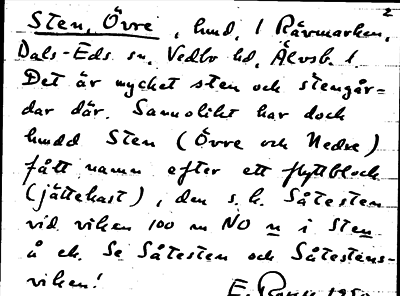 2
Sten, Övre, hmd, i Rävmarken,
Dals-Eds sn, Vedbo hd, Älvsb. l.
Det är mycket sten och stengår-
dar där. Sannolikt har dock
hmdd Sten (Övre och Nedre)
fått namn efter ett flyttblock
(jättekast), den s.k. Såtesten
vid viken 100 m NO n i Sten
å ek. Se Såtesten och Såtestens-
viken!
E. 195